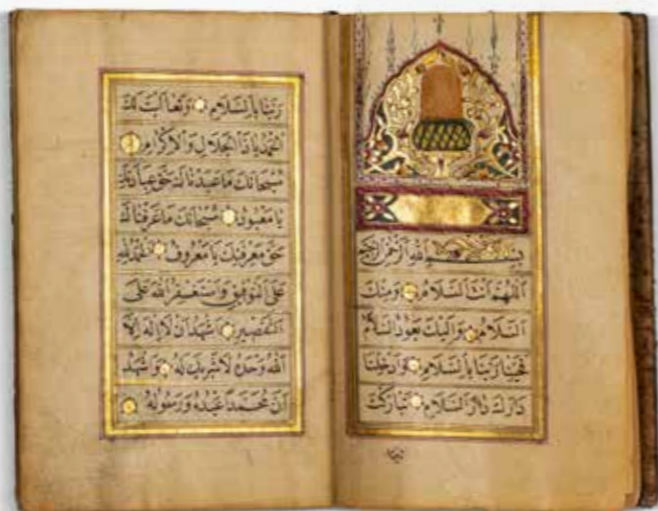 بِسْمِ اللهِ الرَّحْمٰنِ الرَّحِيمِ
اَللّٰهُمَّ اَنْتَ السَّلَامُ وَمِنْكَ
السَّلَامُ وَاِلَيْكَ يَعُودُ السَّلَامُ
فَحَيِّنَا رَبَّنَا بِالسَّلَامِ وَادْخِلْنَا
دَارَكَ دَارَ السَّلَامِ تَبَارَكْتَ
ربنا
رَبَّنَا بِالسَّلَامِ وَتَعَالَيْتَ لَكَ
الْحَمْدُ يَاذَا الْجَلَالِ وَالْاِكْرَامِ
سُبْحَانَكَ مَا عَبَدْنَاكَ حَقَّ عِبَادَتِكَ
يَا مَعْبُودُ سُبْحَانَكَ مَا عَرَفْنَاكَ
حَقَّ مَعْرِفَتِكَ يَا مَعْرُوفُ اَلْحَمْدُ لِلّٰهِ
عَلَى التَّوْفِيقِ وَاَسْتَغْفِرُ اللهَ عَلَى
التَّقْصِيرِ اَشْهَدُ اَنْ لَا اِلٰهَ اِلَّا
اللهُ وَحْدَهُ لَا شَرِيكَ لَهُ وَاَشْهَدُ
اَنَّ مُحَمَّدًا عَبْدُهُ وَرَسُولُهُ